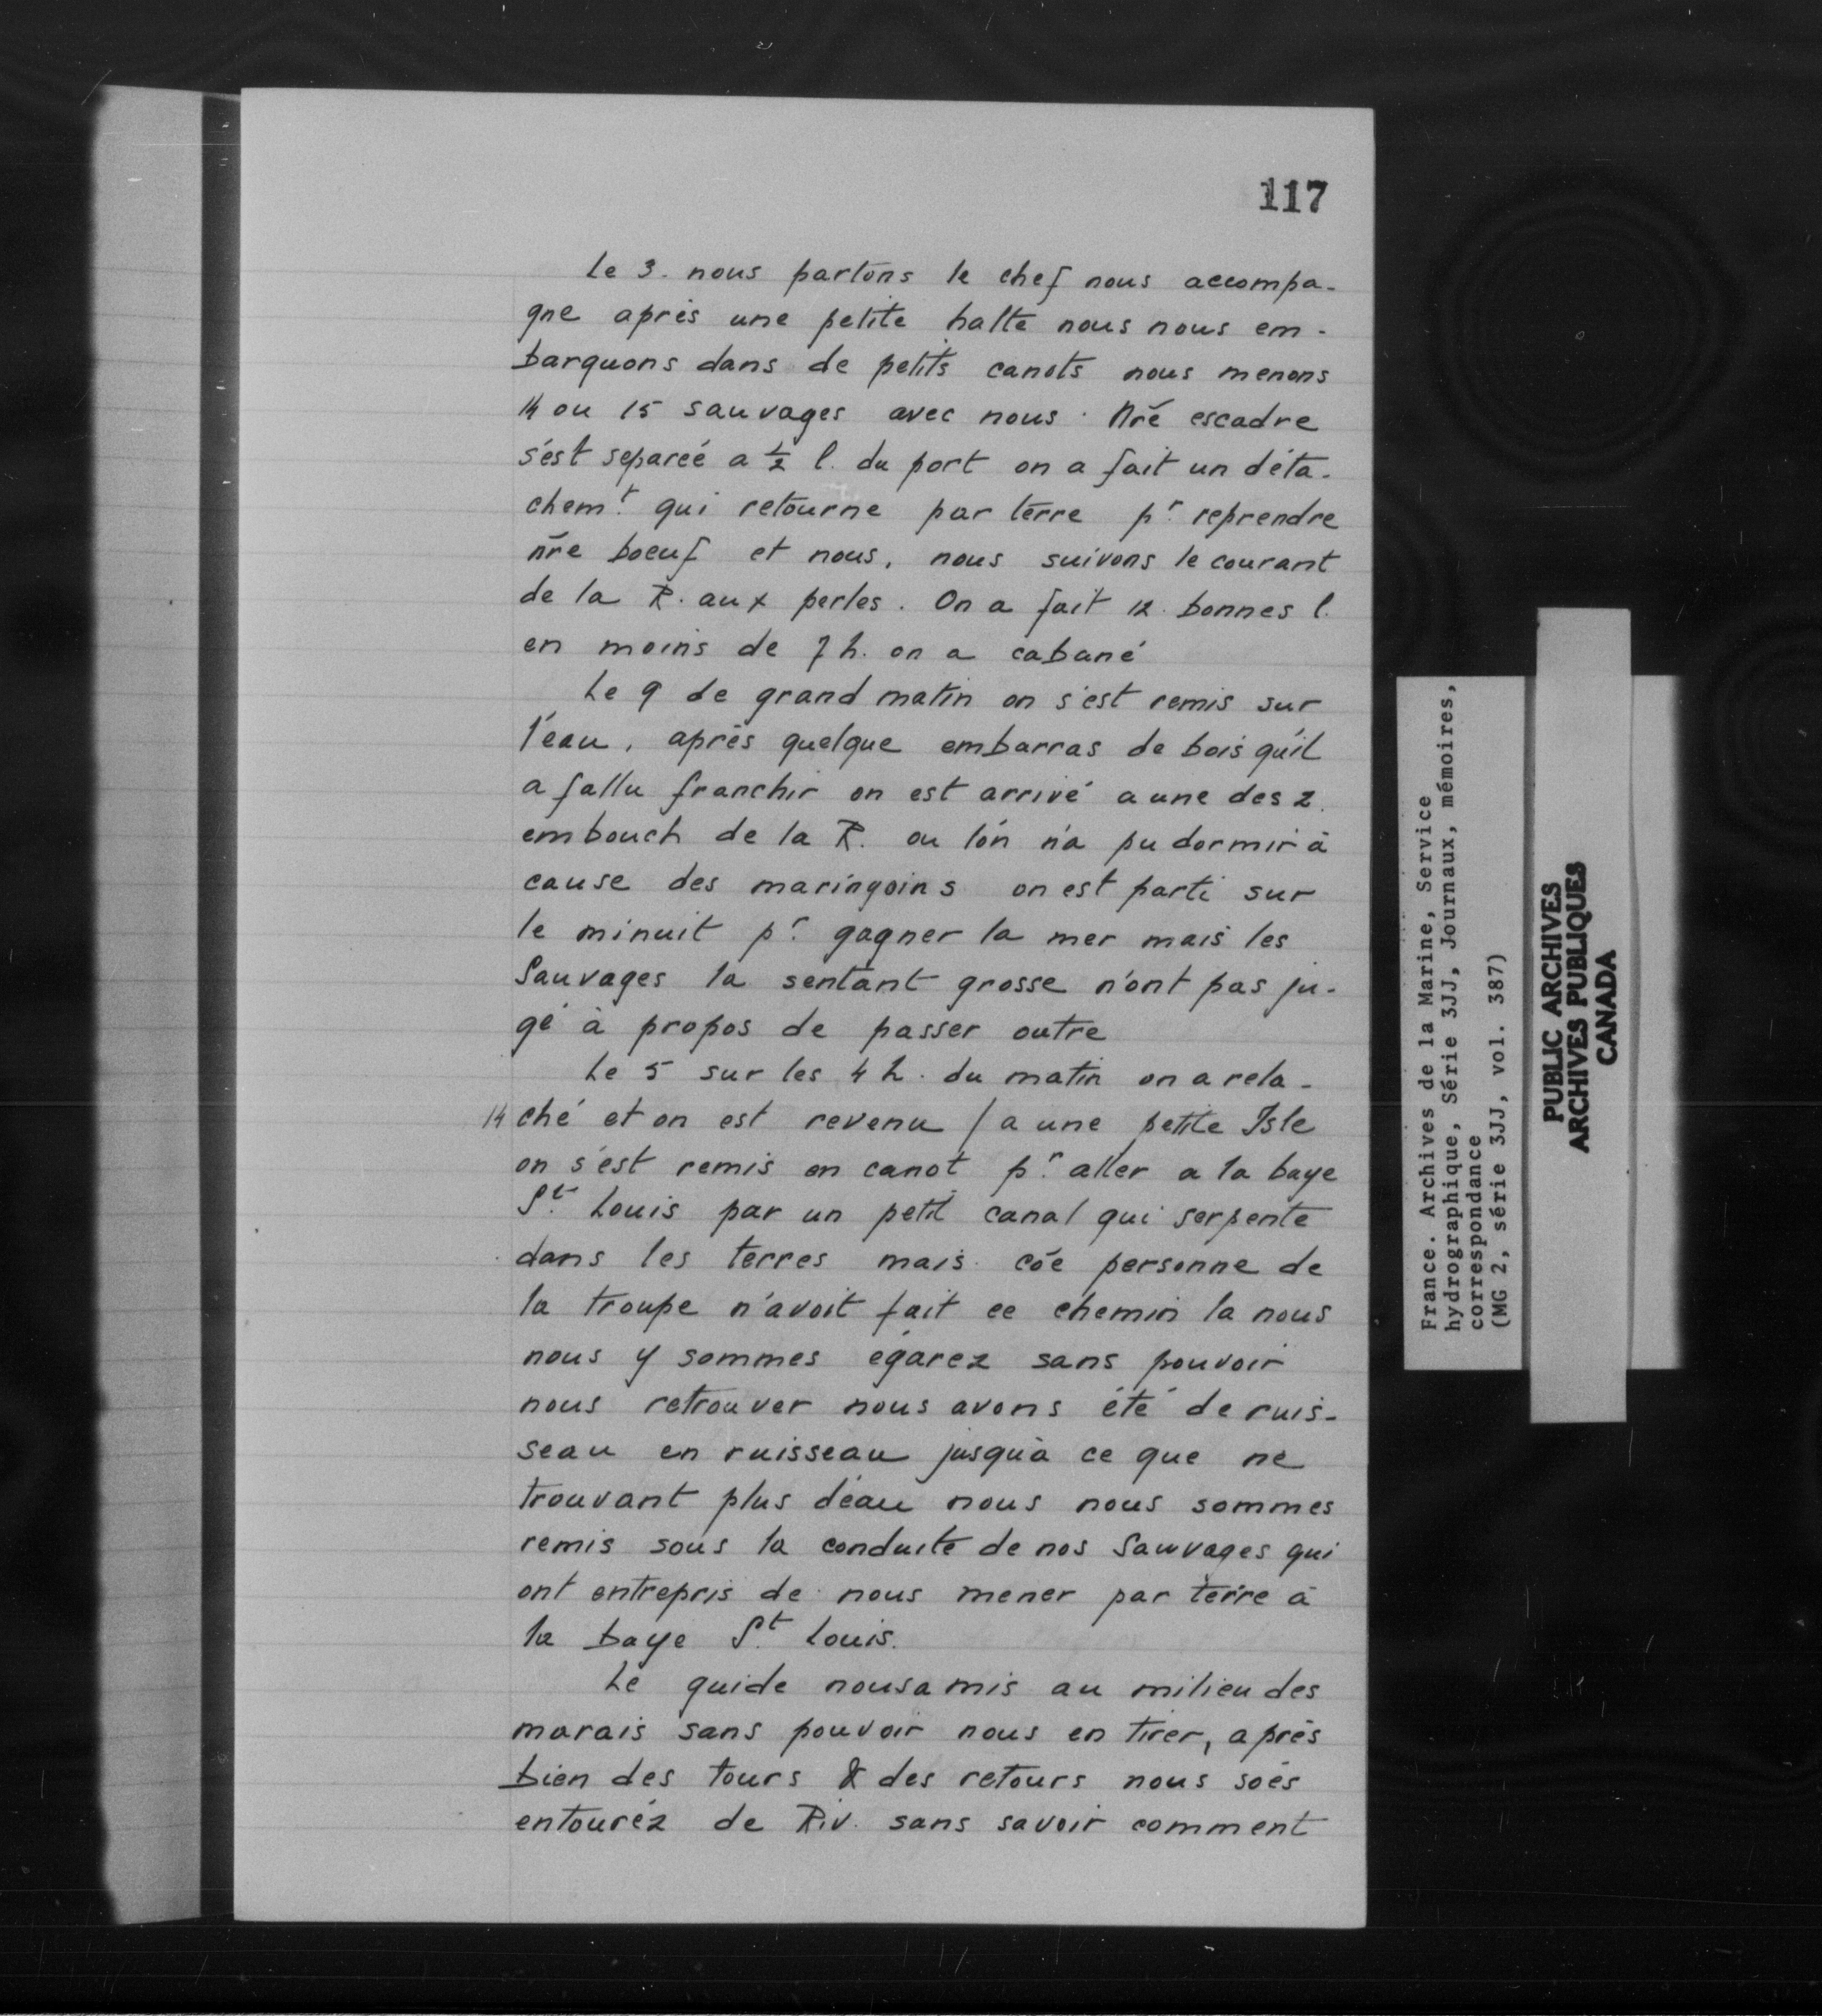 117
Le 3. nous partons le chef nous accompa-
gne après une petite halte nous nous em-
barquons dans de petits canots nous menons
14 ou 15 sauvages avec nous. Nr̃e escadre
s'est separée a ½ l. du port on a fait un déta-
chem.t qui retourne par terre p.r reprendre
nr̃e boeuf et nous, nous suivons le courant
de la R. aux perles. On a fait 12. bonnes l.
en moins de 7 h. on a cabané
Le 9 de grand matin on s'est remis sur
l'eau, après quelque embarras de bois qu'il
a fallu franchir on est arrivé a une des 2.
embouch de la R. ou l'on n'a pu dormir à
cause des maringoins on est parti sur
le minuit p.r gagner la mer mais les
Sauvages la sentant grosse n'ont pas ju-
gé à propos de passer outre
Le 5 sur les 4 h. du matin on a rela-
14 ché et on est revenu / a une petite Isle
on s'est remis en canot p.r aller a la baye
S.t Louis par un petit canal qui serpente
dans les terres mais cõe personne de
la troupe n'avoit fait ce chemin la nous
nous y sommes égarez sans pouvoir
nous retrouver nous avons été de ruis-
seau en ruisseau jusqu'à ce que ne
trouvant plus d'eau nous nous sommes
remis sous la conduite de nos Sauvages qui
ont entrepris de nous mener par terre à
la baye S.t Louis.
Le guide nous a mis au milieu des
marais sans pouvoir nous en tirer, après
bien des tours & des retours nous sões
entouréz de Riv. sans savoir comment
France. Archives de la Marine, Service
hydrographique, Série 3JJ, Journaux, mémoires,
correspondance
(MG 2, série 3JJ, vol. 387)
PUBLIC ARCHIVES
ARCHIVES PUBLIQUES
CANADA